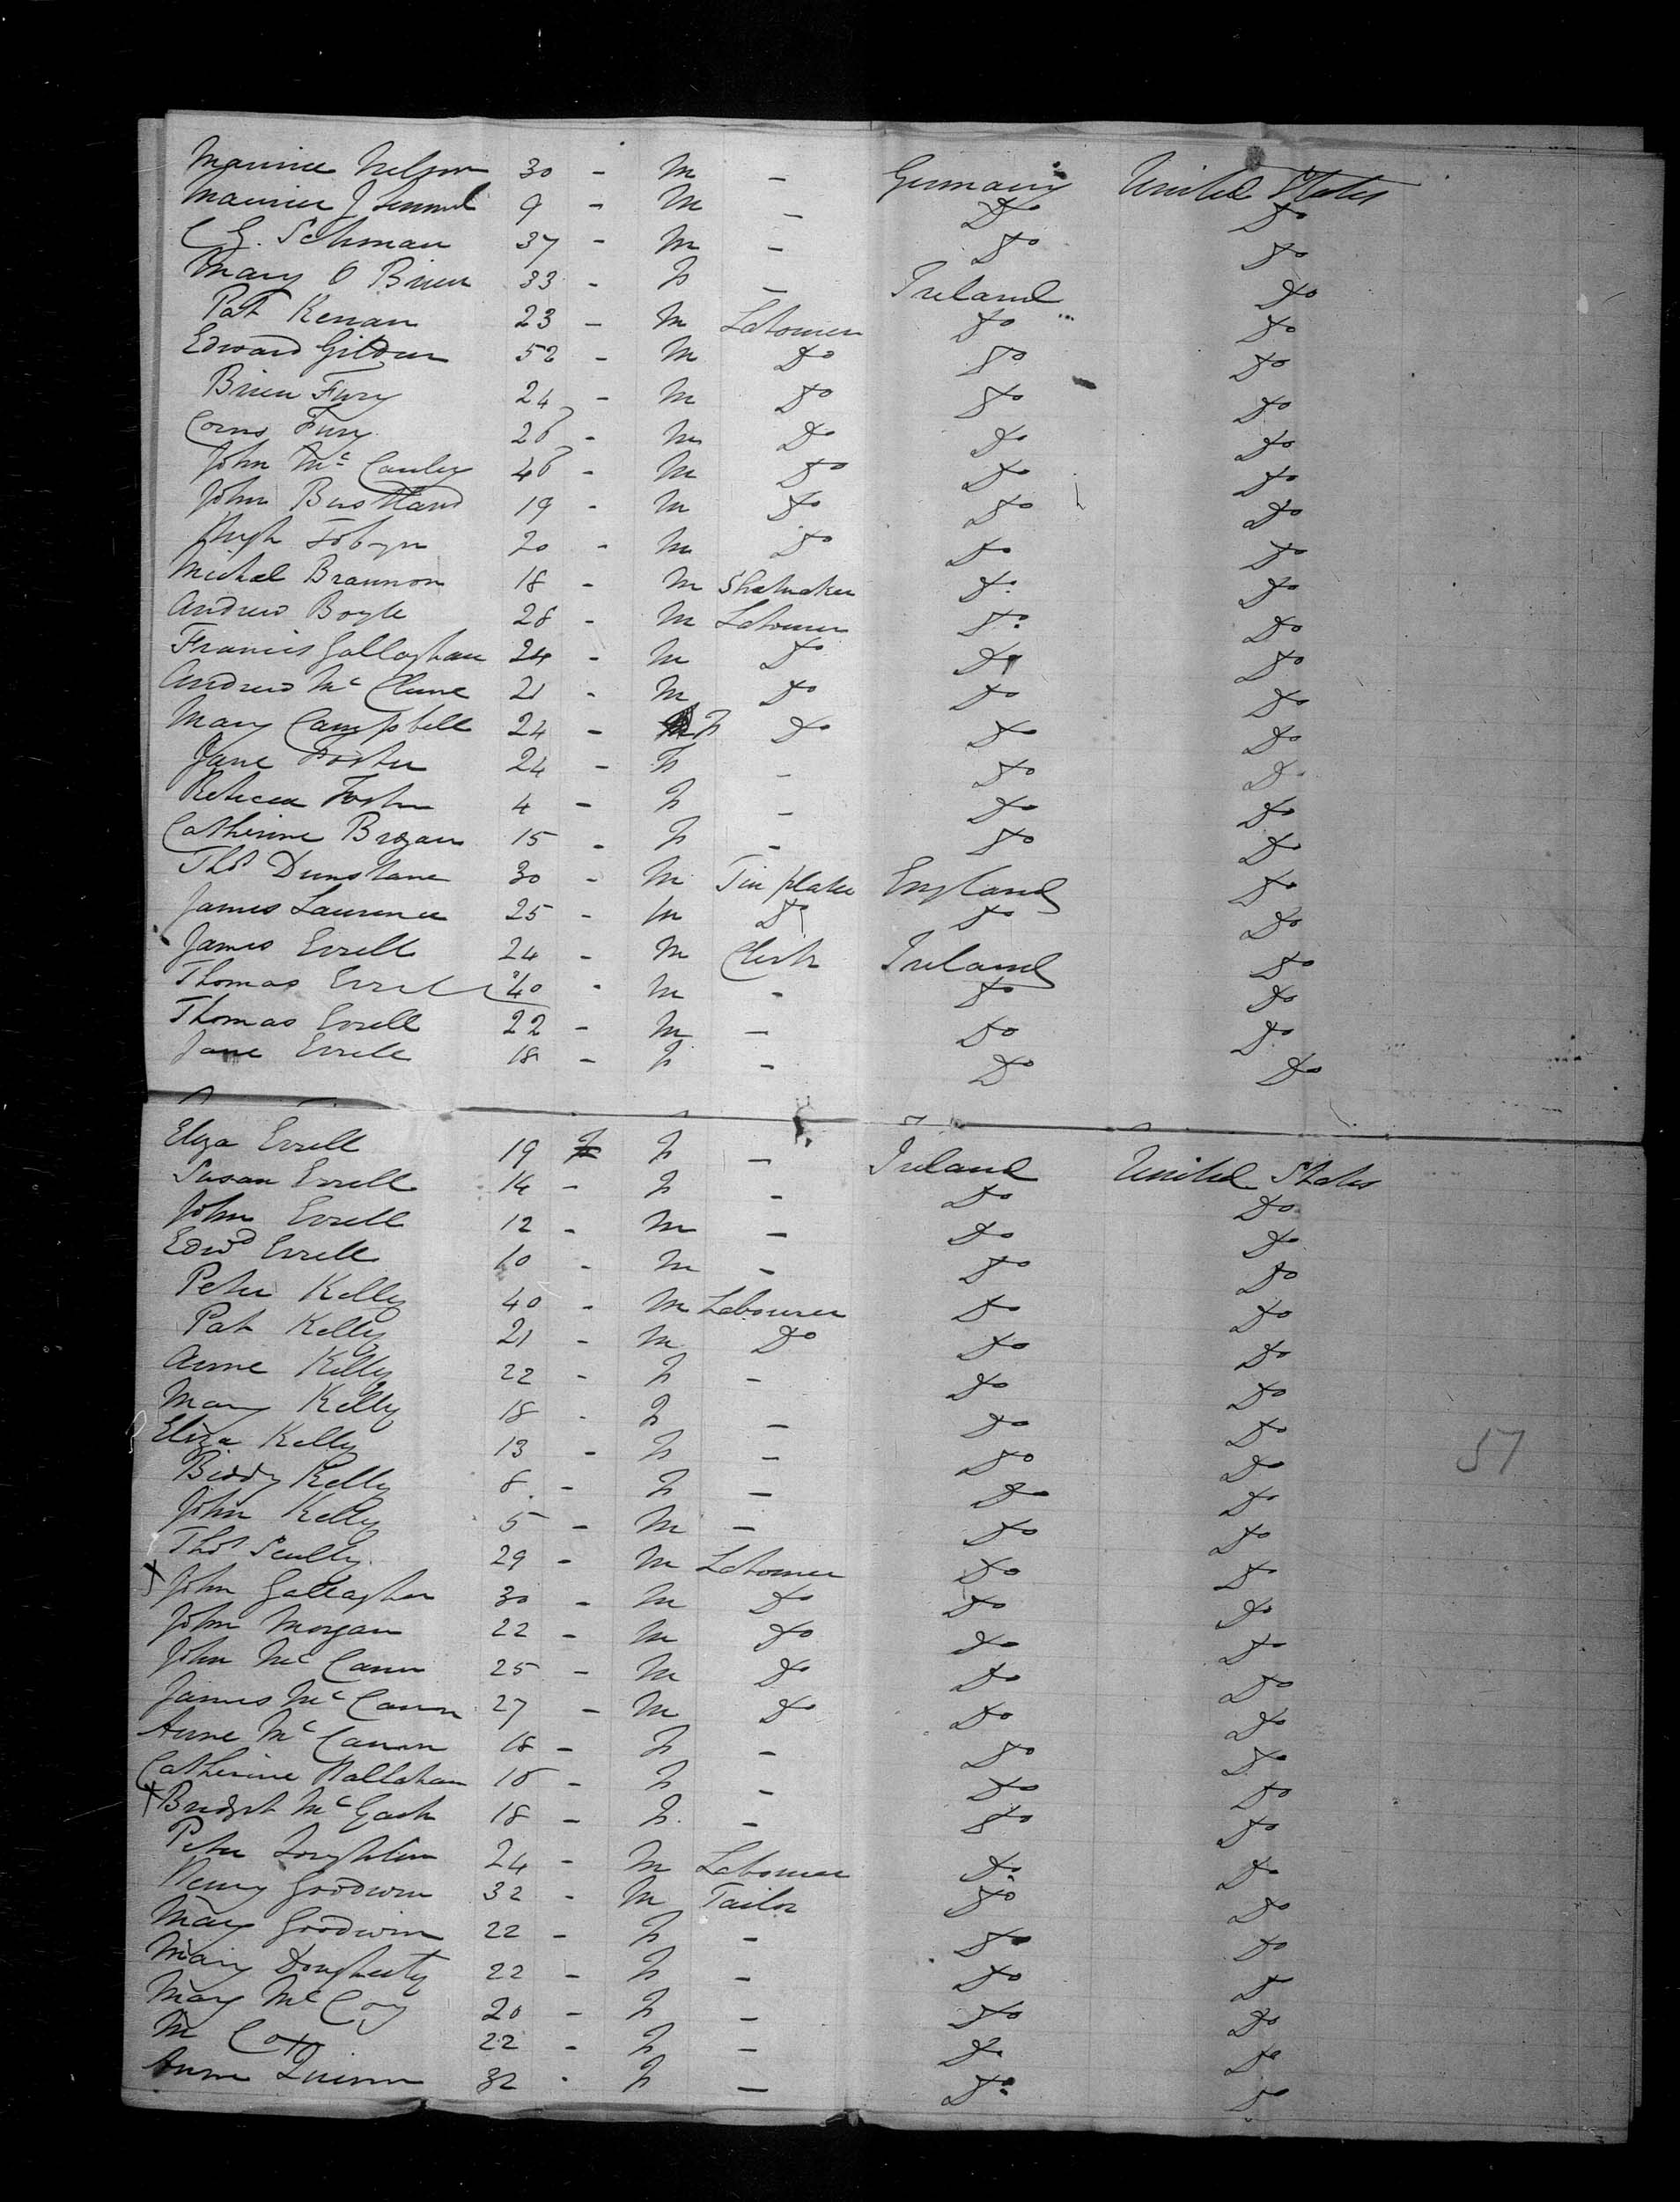 Maurice Nelson 30 - M - Germany United States
Maurice J 9 - M - Do Do
C G. Schman 37 - M - Do Do
Mary O Brien 33 - F - Ireland Do
Pat Kenan 23 - M Labourer Do Do
Edward Gildun 52 - M Do Do Do
Brien Fury 24 - M Do Do Do
Corns Fury 26 - M Do Do Do
John Mc Cauley 46 - M Do Do Do
John Bustland 19 - M Do Do Do
Hugh Tobyn 20 - M Do Do Do
Michael Brannon 18 - M Shoemaker Do Do
Andrew Boyle 28 - M Labourer Do Do
Francis Gallaghan 24 - M Do Do Do
Andrew Mc Clune 21 - M Do Do Do
Mary Campbell 24 - F Do Do Do
Jane Foster 24 - F - Do Do
Rebecca Foster 4 - F - Do Do
Catherine Brogan 15 - F - Do Do
Thos Dunstane 30 - M Tin plate England Do
James Laurence 25 - M Do Do Do
James Errell 24 - M Clerk Ireland Do
Thomas Errell 40 - M - Do Do
Thomas Errell 22 - M - Do Do
Jane Errell 18 - F - Do Do
Eliza Errell 19 F - Ireland United States
Susan Errell 14 - F - Do Do
John Errell 12 - M - Do Do
Edwd Errell 10 - M - Do Do
Peter Kelly 40 - M Labourer Do Do
Pat Kelly 21 - M Do Do Do
Anne Kelly 22 - F - Do Do
Mary Kelly 18 - F - Do Do
Eliza Kelly 13 - F - Do Do
57
Biddy Kelly 8 - F - Do Do
John Kelly 5 - M - Do Do
Thos Scully 29 - M Labourer Do Do
x John Gallagher 30 - M Do Do Do
John Morgan 22 - M Do Do Do
John Mc Cann 25 - M Do Do Do
James Mc Cann 27 - M Do Do Do
Anne Mc Cann 18 - F - Do Do
Catherine Hallahan 18 - F - Do Do
x Bridget Mc 18 - F - Do Do
Peter Loughlin 24 - M Labourer Do Do
Henry Goodwin 32 - M Tailor Do Do
Mary Goodwin 22 - F - Do Do
Mary Dougherty 22 - F - Do Do
Mary Mc Coy 20 - F - Do Do
M Cox 22 - F - Do Do
Anne Quinn 32 - F - Do Do